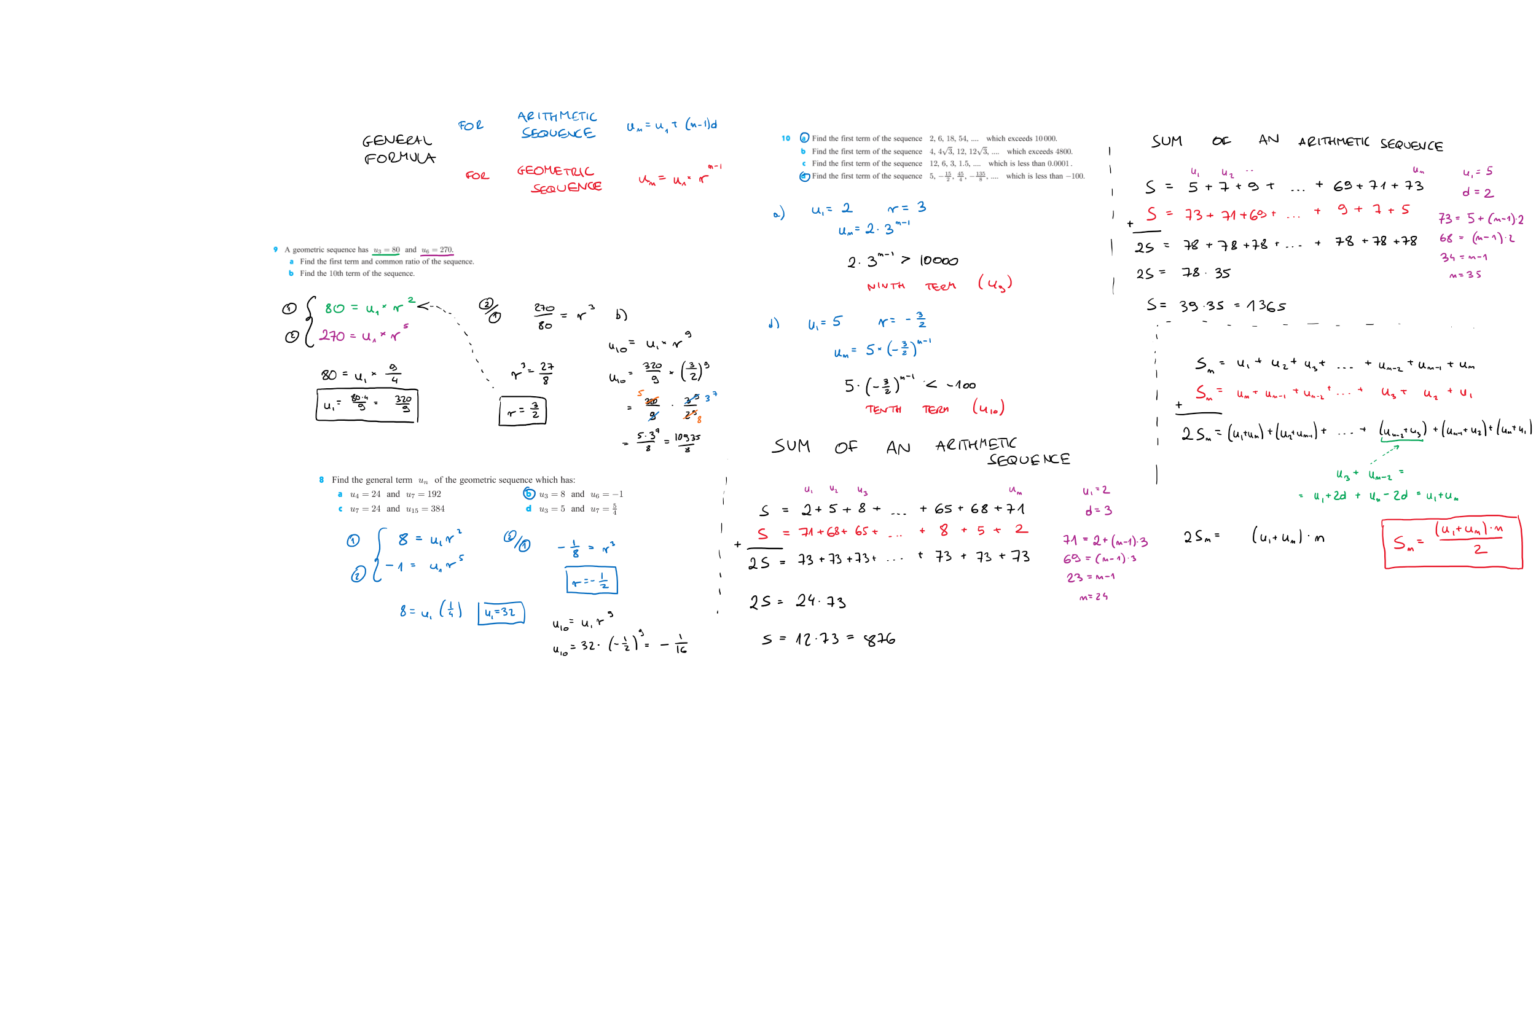 GENERAL FORMULA
FOR ARITHMETIC SEQUENCE uₙ = u₁ + (n-1)d
FOR GEOMETRIC SEQUENCE uₙ = u₁ · r^(n-1)
9 A geometric sequence has u₃ = 80 and u₆ = 270.
a Find the first term and common ratio of the sequence.
b Find the 10th term of the sequence.
① 80 = u₁ · r²
② 270 = u₁ · r⁵
80 = u₁ · 9/4
u₁ = 80·4/9 = 320/9
②/① 270/80 = r³
r³ = 27/8
r = 3/2
b)
u₁₀ = u₁ · r⁹
u₁₀ = 320/9 · (3/2)⁹
= 5 320/9 · 3⁹/2⁹ 3⁷ 8
= 5·3⁷/8 = 10935/8
8 Find the general term uₙ of the geometric sequence which has:
a u₄ = 24 and u₇ = 192
b u₃ = 8 and u₆ = −1
c u₇ = 24 and u₁₅ = 384
d u₃ = 5 and u₇ = 5/4
① 8 = u₁r²
② -1 = u₁r⁵
②/① -1/8 = r³
r = -1/2
8 = u₁ (1/4)
u₁ = 32
u₁₀ = u₁r⁹
u₁₀ = 32 · (-1/2)⁹ = -1/16
10 a Find the first term of the sequence 2, 6, 18, 54, .... which exceeds 10 000.
b Find the first term of the sequence 4, 4√3, 12, 12√3, .... which exceeds 4800.
c Find the first term of the sequence 12, 6, 3, 1.5, .... which is less than 0.0001.
d Find the first term of the sequence 5, −15/2, 45/4, −135/8, .... which is less than −100.
a) u₁ = 2 r = 3
uₙ = 2·3^(n-1)
2·3^(n-1) > 10000
NINTH TERM (u₉)
d) u₁ = 5 r = -3/2
uₙ = 5·(-3/2)^(n-1)
5·(-3/2)^(n-1) < -100
TENTH TERM (u₁₀)
SUM OF AN ARITHMETIC SEQUENCE
u₁ u₂ u₃ uₙ
S = 2 + 5 + 8 + ... + 65 + 68 + 71
S = 71 + 68 + 65 + ... + 8 + 5 + 2
+
2S = 73 + 73 + 73 + ... + 73 + 73 + 73
2S = 24·73
S = 12·73 = 876
u₁ = 2
d = 3
71 = 2 + (n-1)·3
69 = (n-1)·3
23 = n-1
n = 24
SUM OF AN ARITHMETIC SEQUENCE
u₁ u₂ .. uₙ
S = 5 + 7 + 9 + ... + 69 + 71 + 73
S = 73 + 71 + 69 + ... + 9 + 7 + 5
+
2S = 78 + 78 + 78 + ... + 78 + 78 + 78
2S = 78·35
S = 39·35 = 1365
u₁ = 5
d = 2
73 = 5 + (n-1)·2
68 = (n-1)·2
34 = n-1
n = 35
Sₙ = u₁ + u₂ + u₃ + ... + uₙ₋₂ + uₙ₋₁ + uₙ
Sₙ = uₙ + uₙ₋₁ + uₙ₋₂ + ... + u₃ + u₂ + u₁
+
2Sₙ = (u₁+uₙ) + (u₂+uₙ₋₁) + ... + (uₙ₋₂+u₃) + (uₙ₋₁+u₂) + (uₙ+u₁)
u₃ + uₙ₋₂ =
= u₁ + 2d + uₙ - 2d = u₁ + uₙ
2Sₙ = (u₁+uₙ)·n
Sₙ = (u₁+uₙ)·n/2